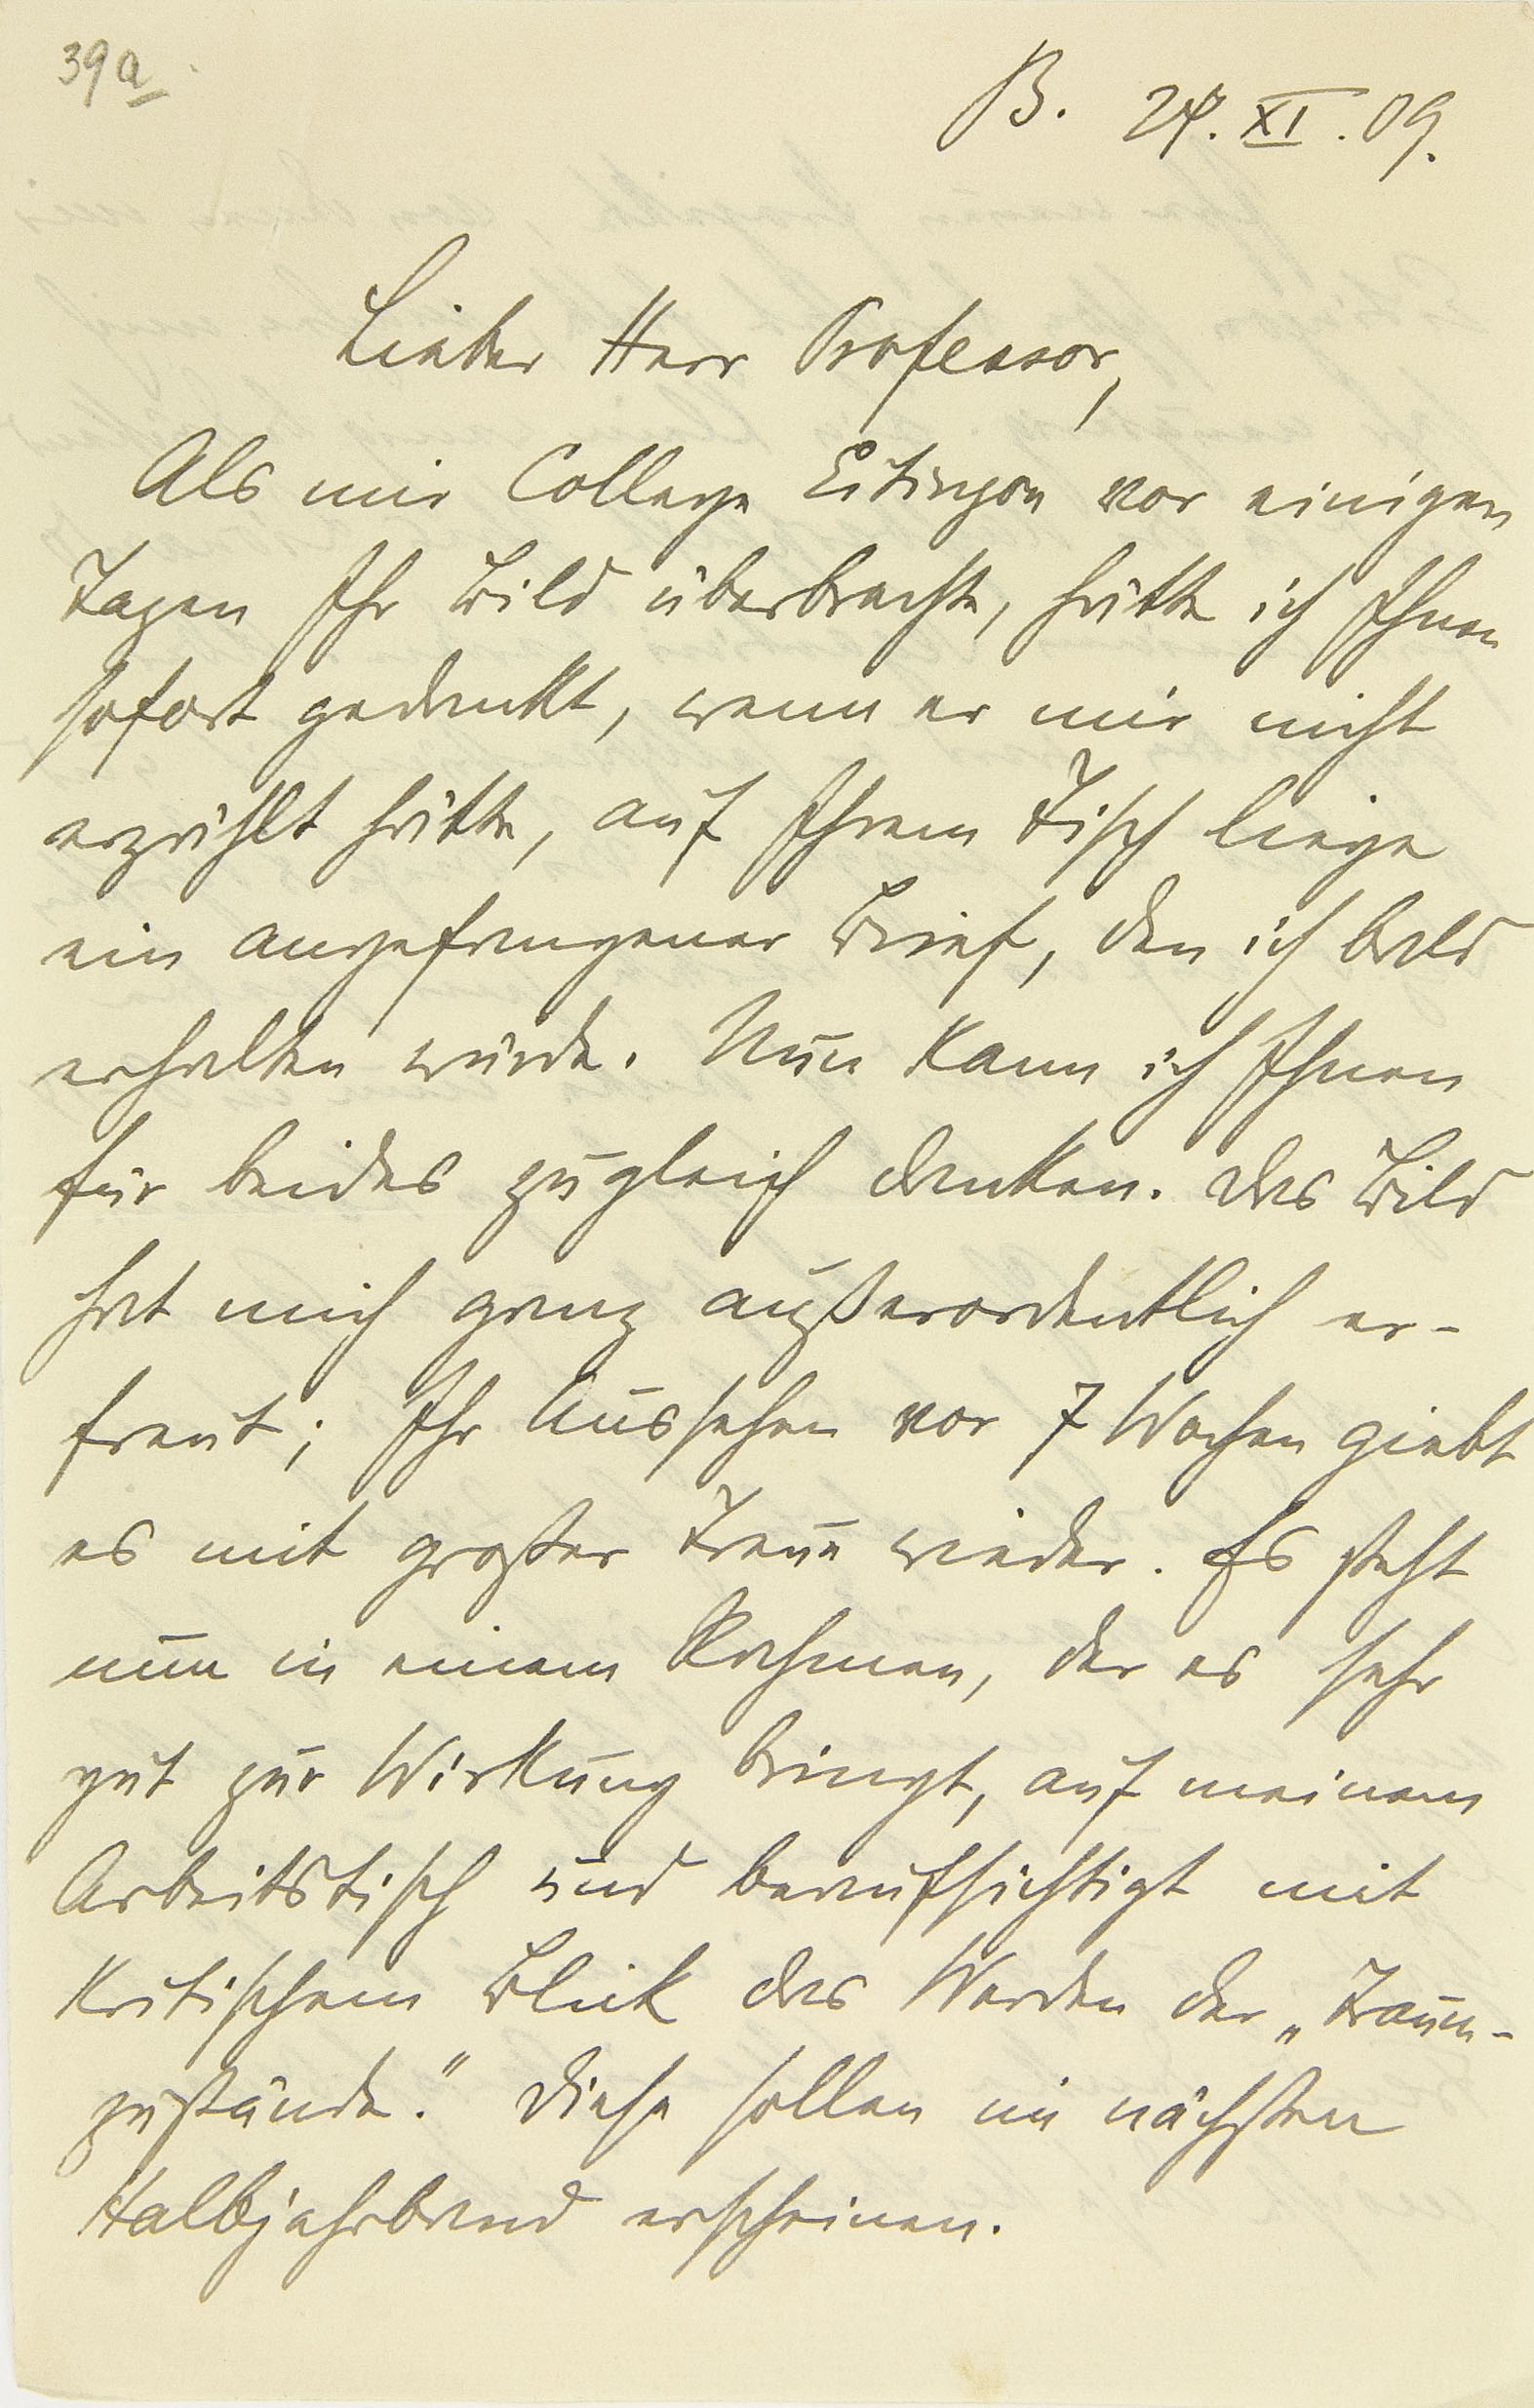 39a
B. 24. XI. 09.
Lieber Herr Professor,
Als mir College Eitingon vor einigen
Tagen Ihr Bild überbrachte, hätte ich Ihnen
sofort gedankt, wenn er mir nicht
erzählt hätte, auf Ihrem Tisch liege
ein angefangener Brief, den ich bald
erhalten würde. Nun kann ich Ihnen
für beides zugleich danken. Das Bild
hat mich ganz außerordentlich er-
freut; Ihr Aussehen vor 7 Wochen giebt
es mit großer Treue wieder. Es steht
nun in einem Rahmen, der es sehr
gut zur Wirkung bringt, auf meinem
Arbeitstisch und beaufsichtigt mit
kritischem Blick das Werden der „Traum-
zustände.“ Diese sollen im nächsten
Halbjahrband erscheinen.